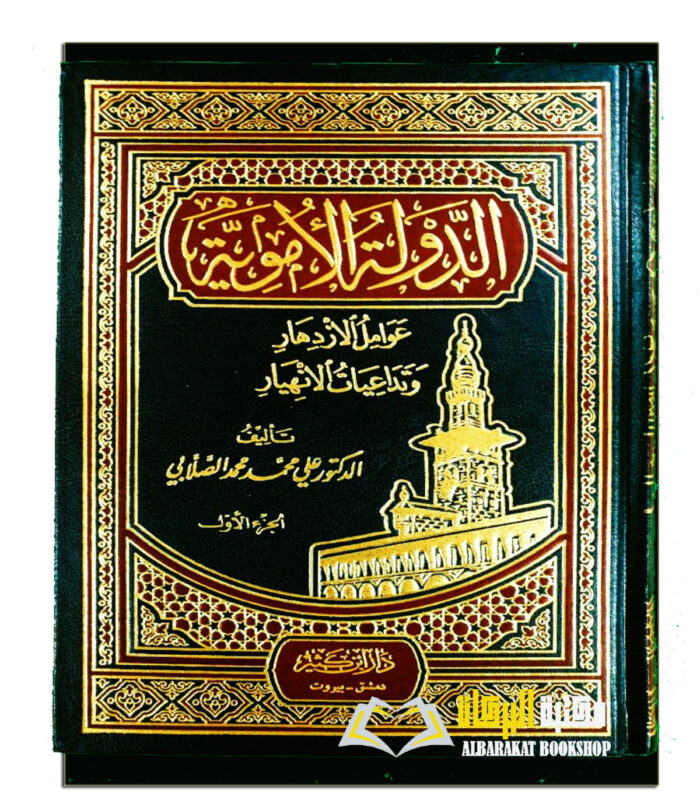 الدَّوْلَةُ الأُمَوِيَّة
عَوَامِلُ الازْدِهَارِ
وَتَدَاعِيَاتُ الانْهِيَارِ
تَأْلِيفُ
الدكتور علي محمد محمد الصَّلَّابي
الجزء الأول
دار ابن كثير
دمشق - بيروت
مكتبة البركات
ALBARAKAT BOOKSHOP